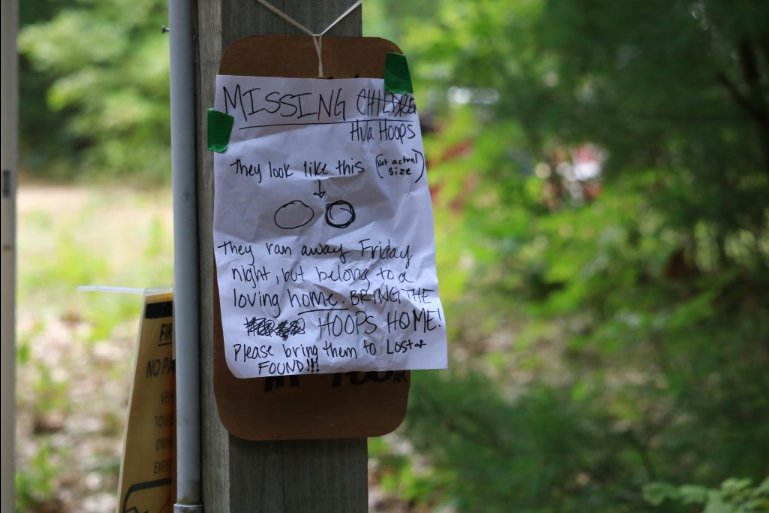 MISSING CHILDRE
Hula Hoops
They look like this (not actual size)
They ran away Friday
night, but belong to a
loving home. BRING THE
HOOPS HOME!
Please bring them to Lost +
FOUND!!!
NO